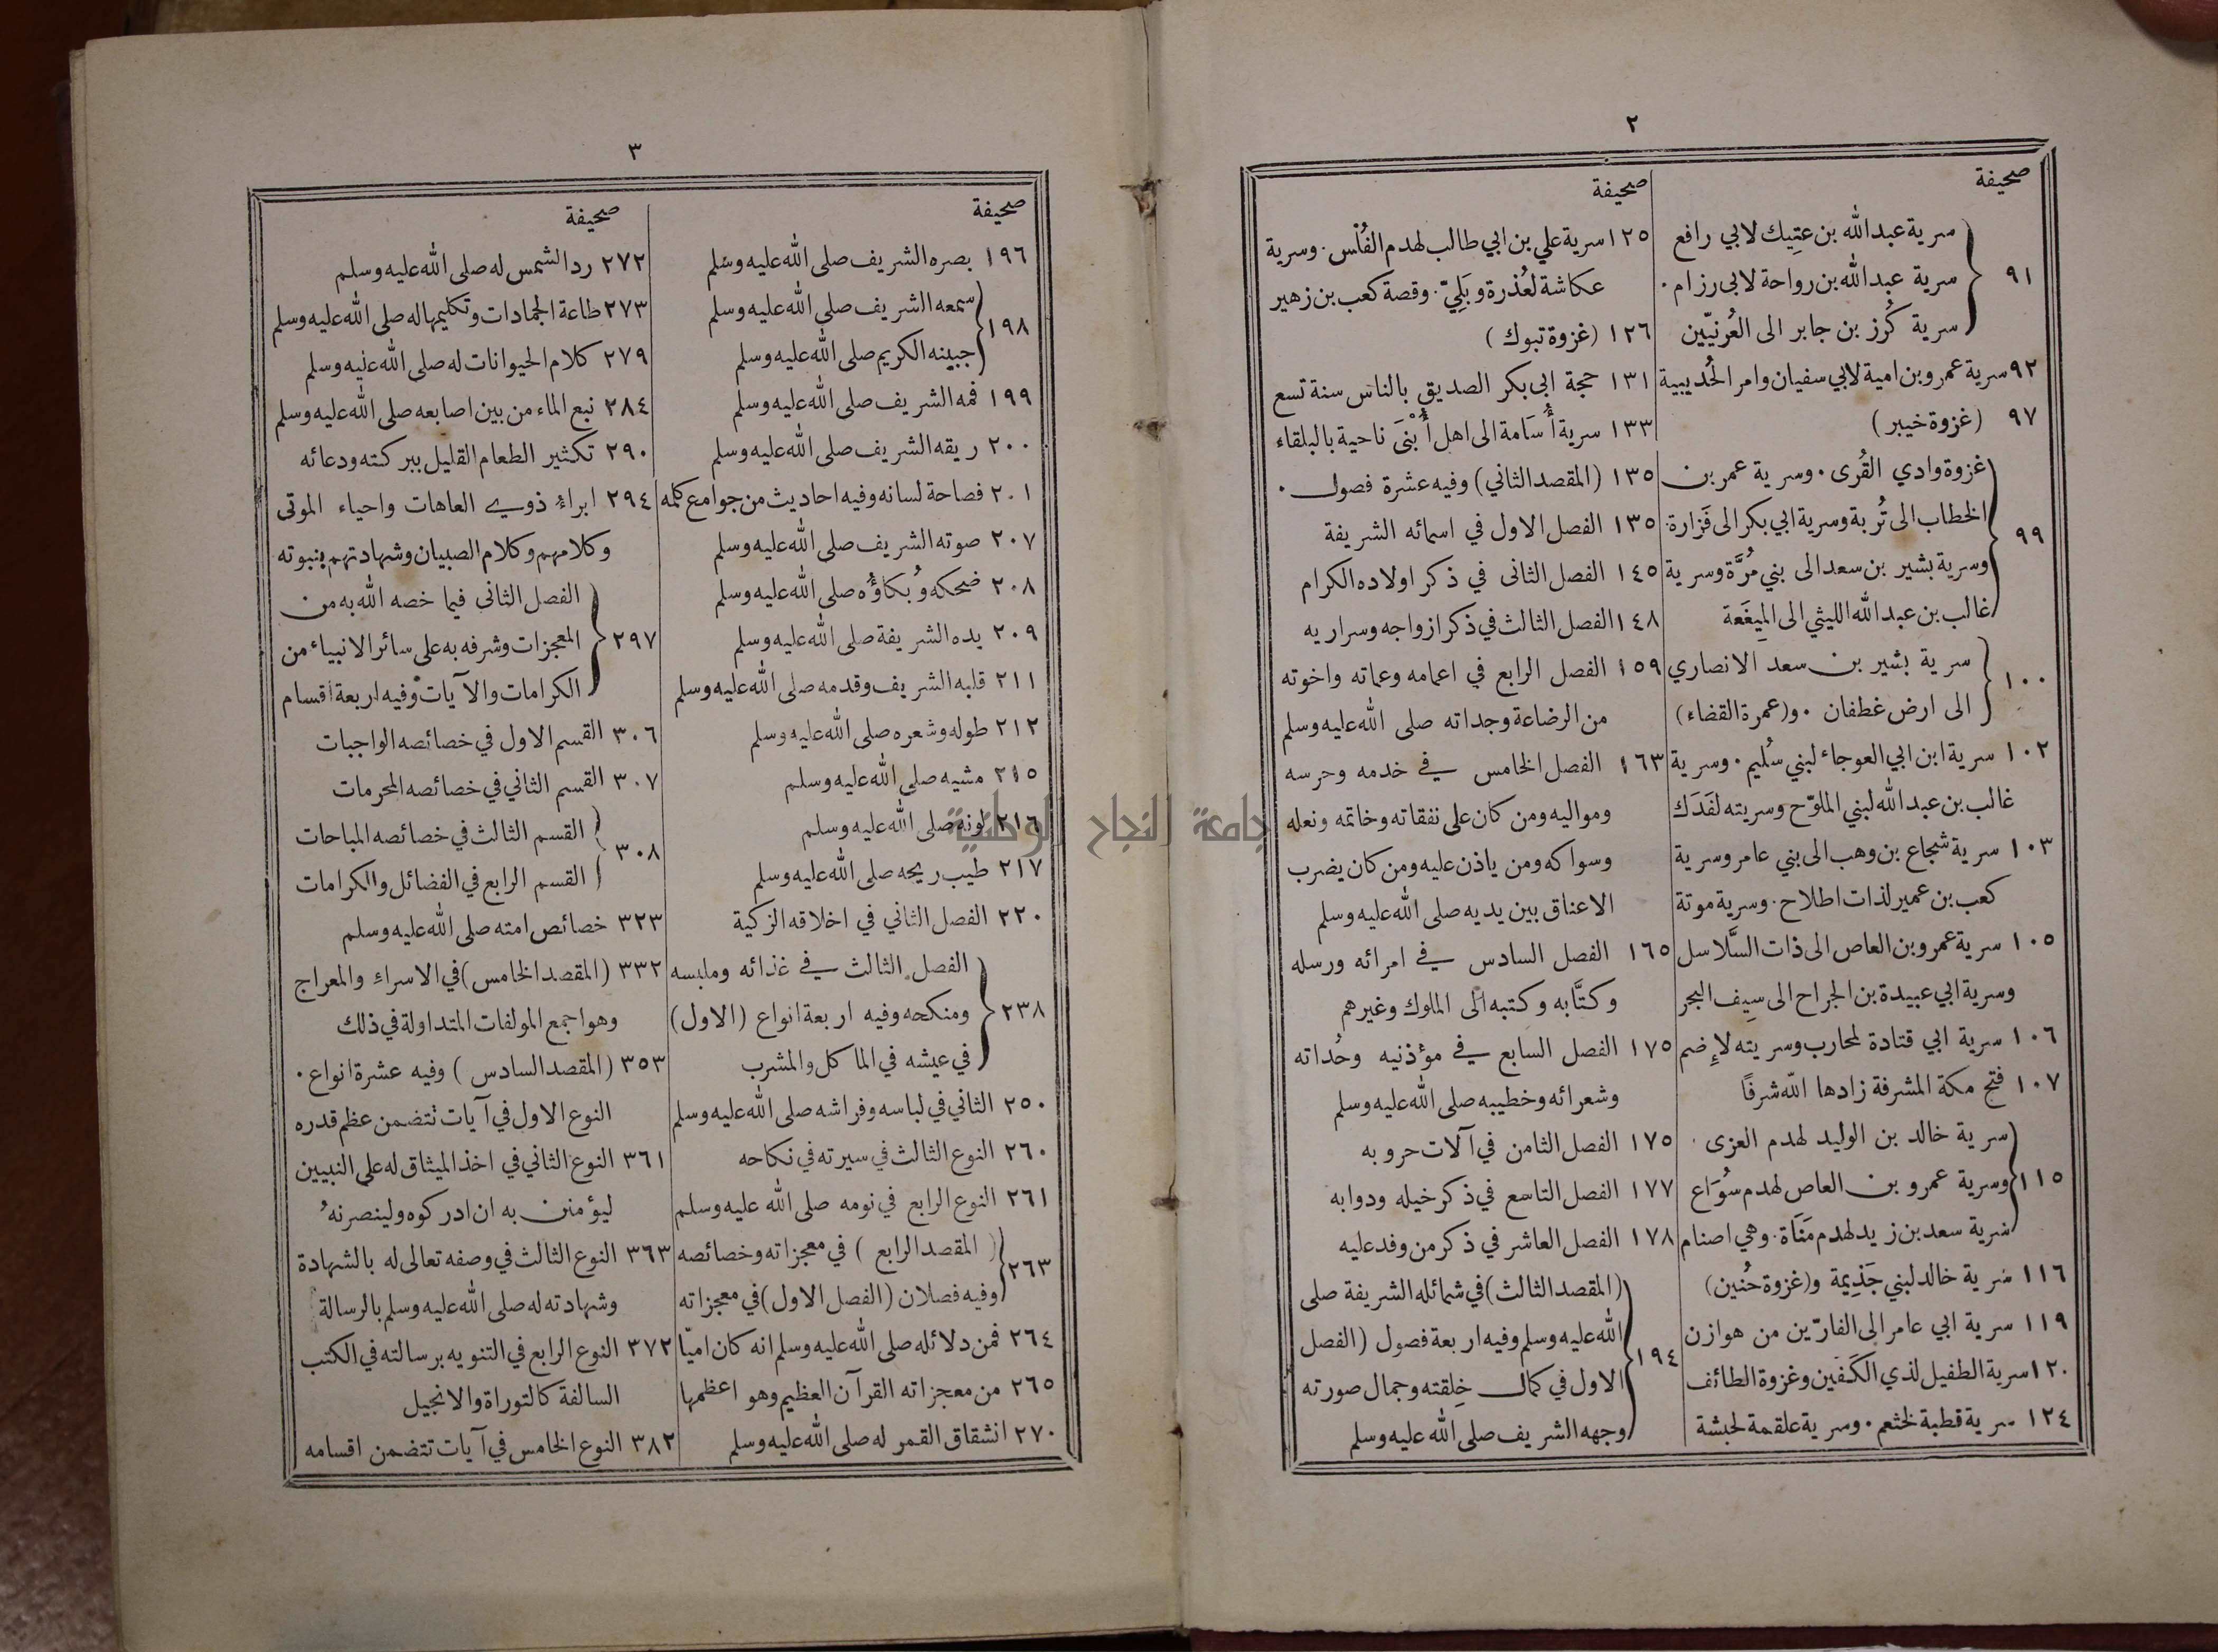 ٢
صحيفة
سرية عبدالله بن عتِيك لابي رافع
٩١ سرية عبدالله بن رواحة لابي رزام ·
سرية كُرز بن جابر الى العُرنيّين
٩٢ سرية عمرو بن امية لابي سفيان وامر الحُديبية
٩٧ (غزوة خيبر)
غزوة وادي القُرى · وسرية عمر بن
الخطاب الى تُربة وسرية ابي بكر الى فَزارة ·
٩٩ وسرية بشير بن سعد الى بني مُرَّة وسرية
غالب بن عبدالله الليثي الى المِيفَعة
١٠٠ سرية بشير بن سعد الانصاري
الى ارض غطفان · و(عمرة القضاء)
١٠٢ سرية ابن ابي العوجاء لبني سُليم · وسرية
غالب بن عبدالله لبني الملوّح وسريته لفَدَك
١٠٣ سرية شجاع بن وهب الى بني عامر وسرية
كعب بن عمير لذات اطلاح · وسرية موتة
١٠٥ سرية عمرو بن العاص الى ذات السَّلاسل
وسرية ابي عبيدة بن الجراح الى سِيف البحر
١٠٦ سرية ابي قتادة لمحارب وسريته لإِضم
١٠٧ فتح مكة المشرفة زادها الله شرفًا
سرية خالد بن الوليد لهدم العزى ·
١١٥ وسرية عمرو بن العاص لهدم سُوَاع
سرية سعد بن زيد لهدم مَنَاة · وهي اصنام
١١٦ سرية خالد لبني جَذِيمة و(غزوة حُنين)
١١٩ سرية ابي عامر الى الفارّين من هوازن
١٢٠ سرية الطفيل لذي الكَفين وغزوة الطائف
١٢٤ سرية قطبة لخثعم · وسرية علقمة لحبشة
صحيفة
١٢٥ سرية علي بن ابي طالب لهدم الفُلْس · وسرية
عكاشة لعُذرة وبَلِيّ · وقصة كعب بن زهير
١٢٦ (غزوة تبوك)
١٣١ حجة ابي بكر الصديق بالناس سنة تسع
١٣٣ سرية أُسَامة الى اهل أُبْنَى ناحية بالبلقاء
١٣٥ (المقصد الثاني) وفيه عشرة فصول ·
١٣٥ الفصل الاول في اسمائه الشريفة
١٤٥ الفصل الثانى في ذكر اولاده الكرام
١٤٨ الفصل الثالث في ذكر ازواجه وسراريه
١٥٩ الفصل الرابع في اعمامه وعماته واخوته
من الرضاعة وجداته صلى الله عليه وسلم
١٦٣ الفصل الخامس في خدمه وحرسه
ومواليه ومن كان على نفقاته وخاتمه ونعله
وسواكه ومن ياذن عليه ومن كان يضرب
الاعناق بين يديه صلى الله عليه وسلم
١٦٥ الفصل السادس في امرائه ورسله
وكتَّابه وكتبه الى الملوك وغيرهم
١٧٥ الفصل السابع في مؤذنيه وحُداته
وشعرائه وخطيبه صلى الله عليه وسلم
١٧٥ الفصل الثامن في آلات حروبه
١٧٧ الفصل التاسع في ذكر خيله ودوابه
١٧٨ الفصل العاشر في ذكر من وفد عليه
(المقصد الثالث) في شمائله الشريفة صلى
الله عليه وسلم وفيه اربعة فصول (الفصل
١٩٤ الاول في كمال خِلقته وجمال صورته
وجهه الشريف صلى الله عليه وسلم
٣
صحيفة
١٩٦ بصره الشريف صلى الله عليه وسلم
١٩٨ سمعه الشريف صلى الله عليه وسلم
جبينه الكريم صلى الله عليه وسلم
١٩٩ فمه الشريف صلى الله عليه وسلم
٢٠٠ ريقه الشريف صلى الله عليه وسلم
٢٠١ فصاحة لسانه وفيه احاديث من جوامع كلمه
٢٠٧ صوته الشريف صلى الله عليه وسلم
٢٠٨ ضحكه وُبكاؤُه صلى الله عليه وسلم
٢٠٩ يده الشريفة صلى الله عليه وسلم
٢١١ قلبه الشريف وقدمه صلى الله عليه وسلم
٢١٢ طوله وشعره صلى الله عليه وسلم
٢١٥ مشيه صلى الله عليه وسلم
٢١٦ لونه صلى الله عليه وسلم
٢١٧ طيب ريحه صلى الله عليه وسلم
٢٢٠ الفصل الثاني في اخلاقه الزكية
الفصل الثالث في غذائه وملبسه
٢٣٨ ومنكحه وفيه اربعة انواع (الاول)
في عيشه في الماكل والمشرب
٢٥٠ الثاني في لباسه وفراشه صلى الله عليه وسلم
٢٦٠ النوع الثالث في سيرته في نكاحه
٢٦١ النوع الرابع في نومه صلى الله عليه وسلم
٢٦٣ (المقصد الرابع) في معجزاته وخصائصه
وفيه فصلان (الفصل الاول) في معجزاته
٢٦٤ فمن دلائله صلى الله عليه وسلم انه كان اميّا
٢٦٥ من معجزاته القرآن العظيم وهو اعظمها
٢٧٠ انشقاق القمر له صلى الله عليه وسلم
صحيفة
٢٧٢ رد الشمس له صلى الله عليه وسلم
٢٧٣ طاعة الجمادات وتكليمها له صلى الله عليه وسلم
٢٧٩ كلام الحيوانات له صلى الله عليه وسلم
٢٨٤ نبع الماء من بين اصابعه صلى الله عليه وسلم
٢٩٠ تكثير الطعام القليل ببركته ودعائه
٢٩٤ ابراء ذوي العاهات واحياء الموتى
وكلامهم وكلام الصبيان وشهادتهم بنبوته
الفصل الثاني فيما خصه الله به من
٢٩٧ المعجزات وشرفه به على سائر الانبياء من
الكرامات والآيات وفيه اربعة اقسام
٣٠٦ القسم الاول في خصائصه الواجبات
٣٠٧ القسم الثاني في خصائصه المحرمات
٣٠٨ القسم الثالث في خصائصه المباحات
القسم الرابع في الفضائل والكرامات
٣٢٣ خصائص امته صلى الله عليه وسلم
٣٣٢ (المقصد الخامس) في الاسراء والمعراج
وهو اجمع المولفات المتداولة في ذلك
٣٥٣ (المقصد السادس) وفيه عشرة انواع ·
النوع الاول في آيات تتضمن عظم قدره
٣٦١ النوع الثاني في اخذ الميثاق له على النبيين
ليؤمنن به ان ادركوه ولينصرنهُ
٣٦٣ النوع الثالث في وصفه تعالى له بالشهادة
وشهادته له صلى الله عليه وسلم بالرسالة
٣٧٢ النوع الرابع في التنويه برسالته في الكتب
السالفة كالتوراة والانجيل
٣٨٢ النوع الخامس في آيات تتضمن اقسامه
جامعة النجاح الوطنية